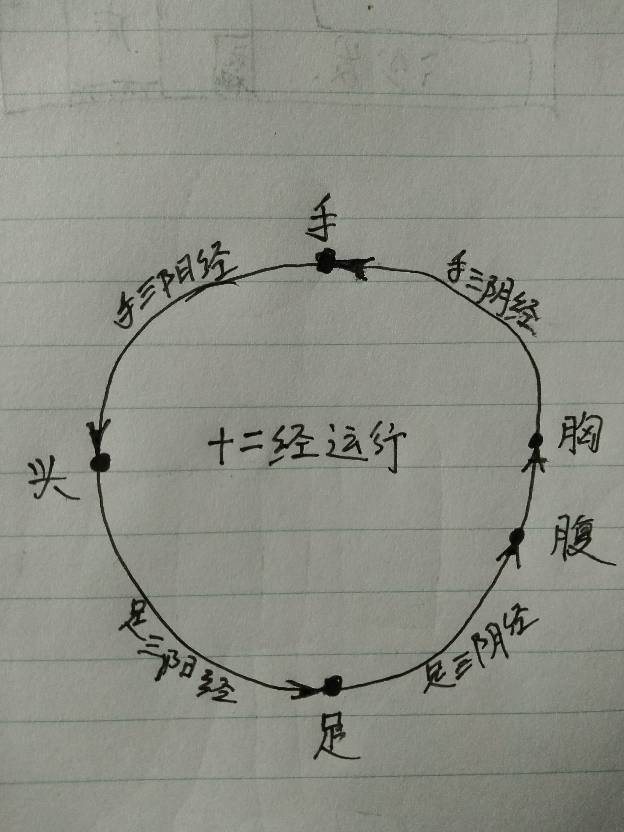 手
手三阳经
手三阴经
十二经运行
胸
头
腹
足三阳经
足三阴经
足